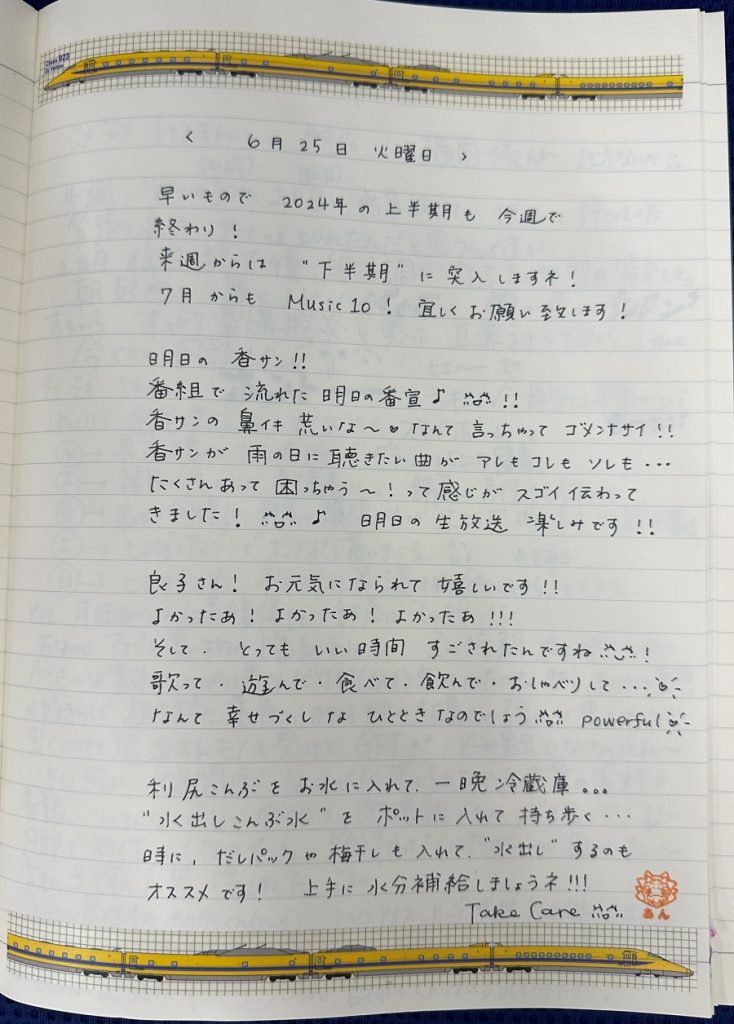 Class 923
Dr. Yellow
< 6月25日 火曜日 >
早いもので 2024年の上半期も 今週で
終わり!
来週からは "下半期"に突入しますネ!
7月からも Music10! 宜しくお願い致します!
明日の 香サン!!
番組で 流れた 明日の番宣♪ !!
香サンの 鼻イキ 荒いな〜 なんて 言っちゃって ゴメンナサイ!!
香サンが 雨の日に聴きたい曲が アレも コレも ソレも・・・
たくさんあって 困っちゃう〜!って感じが スゴイ伝わって
きました! ♪ 明日の生放送 楽しみです!!
良子さん! お元気になられて 嬉しいです!!
よかったあ! よかったあ! よかったあ!!!
そして、とっても いい時間 すごされたんですね !
歌って・遊んで・食べて・飲んで・おしゃべりして・・・
なんて 幸せづくしな ひとときなのでしょう powerful
利尻こんぶを お水に入れて、一晩冷蔵庫...
"水出しこんぶ水"を ポットに入れて 持ち歩く・・・
時に、だしパックや梅干しも入れて、"水出し"するのも
オススメです! 上手に 水分補給しましょうネ!!!
あん
Take Care